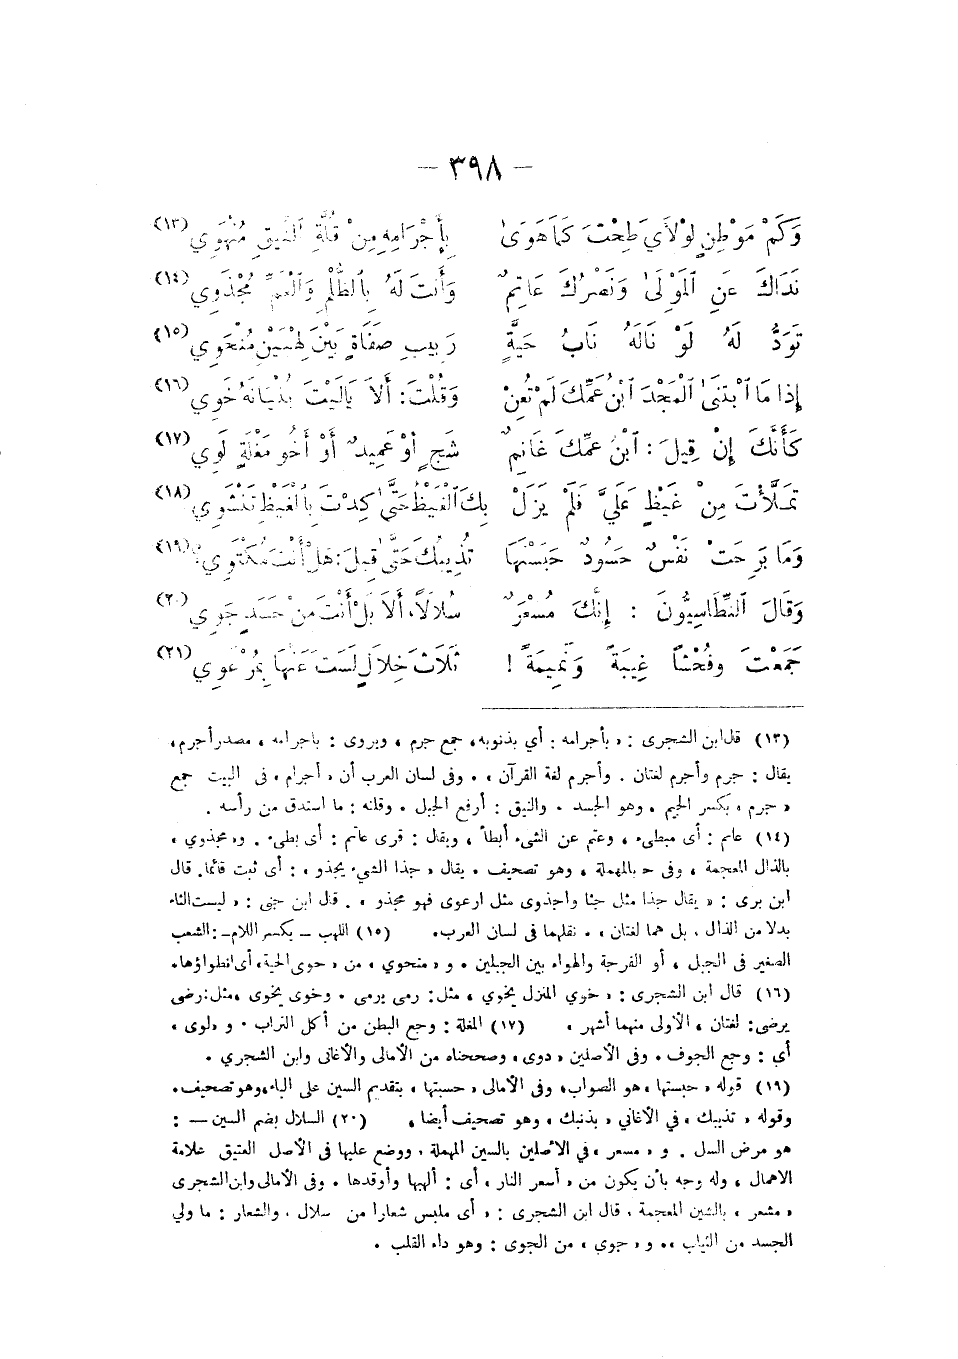 — ٣٩٨ —
وَكَمْ مَوْطِنٍ لَوْلَايَ طِحْتَ كَمَا هَوَىٰ بِأَجْرَامِهِ مِنْ قُلَّةِ النِّيقِ مُنْهَوِي (١٣)
نَدَاكَ عَنِ الْمَوْلَىٰ وَنَصْرُكَ عَاتِمٌ وَأَنتَ لَهُ بِالظُّلْمِ وَالْغِمْرِ مُجْذَوِي (١٤)
تَوَدُّ لَهُ لَوْ نَالَهُ نَابُ حَيَّةٍ رَبِيبِ صَفَاةٍ بَيْنَ لِهْبَيْنِ مُنْحَوِي (١٥)
إِذَا مَا ابْتَنَىٰ الْمَجْدَ ابْنُ عَمِّكَ لَمْ تُعِنْ وَقُلْتَ: أَلَا يَالَيْتَ بُنْيَانَهُ خَوِي (١٦)
كَأَنَّكَ إِنْ قِيلَ: ابْنُ عَمِّكَ غَانِمٌ شَجٍ أَوْ عَمِيدٌ أَوْ أَخُو مَغْلَةٍ لَوِي (١٧)
تَمَلَّأْتَ مِنْ غَيْظٍ عَلَيَّ فَلَمْ يَزَلْ بِكَ الْغَيْظُ حَتَّىٰ كِدْتَ بِالْغَيْظِ تَنْشَوِي (١٨)
وَمَا بَرِحَتْ نَفْسٌ حَسُودٌ حَبَسْتَهَا تُذِيبُكَ حَتَّىٰ قِيلَ: هَلْ أَنْتَ مُكْتَوِي؟ (١٩)
وَقَالَ النِّطَاسِيُّونَ: إِنَّكَ مُسْعَرٌ سُلَالًا، أَلَا بَلْ أَنْتَ مِنْ حَسَدٍ جَوِي (٢٠)
جَمَعْتَ وَفُحْشًا غِيبَةً وَنَمِيمَةً! ثَلَاثَ خِلَالٍ لَسْتَ عَنْهَا بِمُرْعَوِي (٢١)
(١٣) قال ابن الشجرى: «بأجرامه: أي بذنوبه، جمع جرم، ويروى: باجرامه، مصدر أجرم،
يقال: جرم وأجرم لغتان. وأجرم لغة القرآن». وفى لسان العرب أن «أجرام» فى البيت جمع
«جرم» بكسر الجيم. وهو الجسد. والنيق: أرفع الجبل. وقلته: ما استدق من رأسه.
(١٤) عاتم: أى مبطىء، وعتم عن الشىء أبطأ، ويقال: قرى عاتم: أى بطىء. و«مجذوي»
بالذال المعجمة، وفى ح بالمهملة، وهو تصحيف. يقال «جذا الشيء يجذو»: أى ثبت قائما. قال
ابن برى: «يقال جذا مثل جثا واجذوى مثل ارعوى فهو مجذو». قال ابن جنى: «ليست الثاء
بدلا من الذال، بل هما لغتان». نقلهما فى لسان العرب. (١٥) اللهب – بكسر اللام –: الشعب
الصغير فى الجبل، أو الفرجة والهواء بين الجبلين. و«منحوي» من «حوى الحية» أى انطواؤها.
(١٦) قال ابن الشجرى: «خوي المنزل يخوي، مثل: رمى يرمى. وخوى يخوى، مثل: رضى
يرضى: لغتان، الأولى منهما أشهر» (١٧) المغلة: وجع البطن من أكل التراب. و«لوى»
أي: وجع الجوف. وفى الأصلين «دوى» وصححناه من الأمالى والأغانى وابن الشجري.
(١٩) قوله «حبستها» هو الصواب، وفى الأمالى «حسبتها» بتقديم السين على الباء، وهو تصحيف.
وقوله «تذيبك» في الأغاني «بذنبك» وهو تصحيف أيضا. (٢٠) السلال بضم السين —:
هو مرض السل. و«مسعر» في الأصلين بالسين المهملة، ووضع عليها فى الأصل العتيق علامة
الاهمال، وله وجه بأن يكون من «أسعر النار» أى: ألهبها وأوقدها. وفى الأمالى وابن الشجرى
«مشعر» بالشين المعجمة، قال ابن الشجرى: «أى ملبس شعارا من سلال، والشعار: ما ولي
الجسد من الثياب». و«جوي» من الجوى: وهو داء القلب.